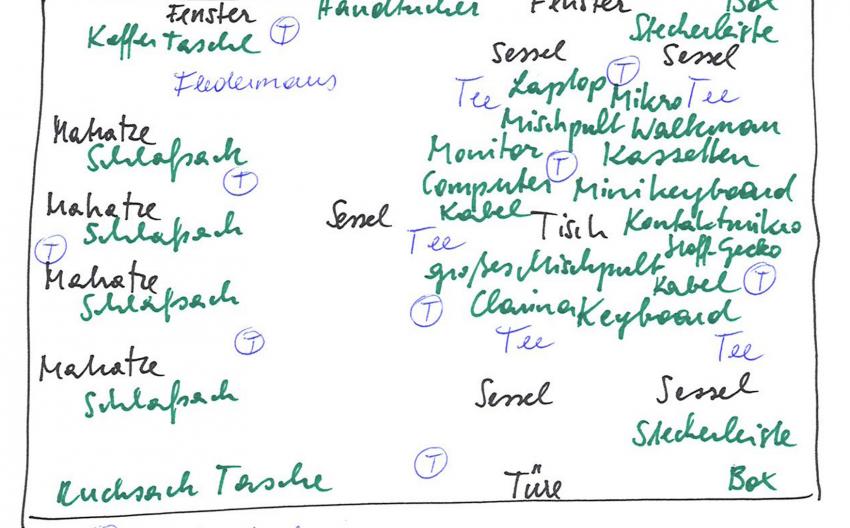 Fenster Handtücher Fenster Box
Koffer Tasche T Steckerleiste
Sessel Sessel
Fledermaus Tee Laptop T Mikro Tee
Matratze Mischpult Walkman
Schlafsack Monitor T Kassetten
T Computer Minikeyboard
Matratze Sessel Kabel Tisch Kontaktmikro
Schlafsack Tee Stoff-Gecko
T großes Mischpult Kabel T
Matratze
Schlafsack T Keyboard
T Tee Tee
Matratze
Schlafsack Sessel Sessel
Steckerleiste
T
Rucksack Tasche Türe Box